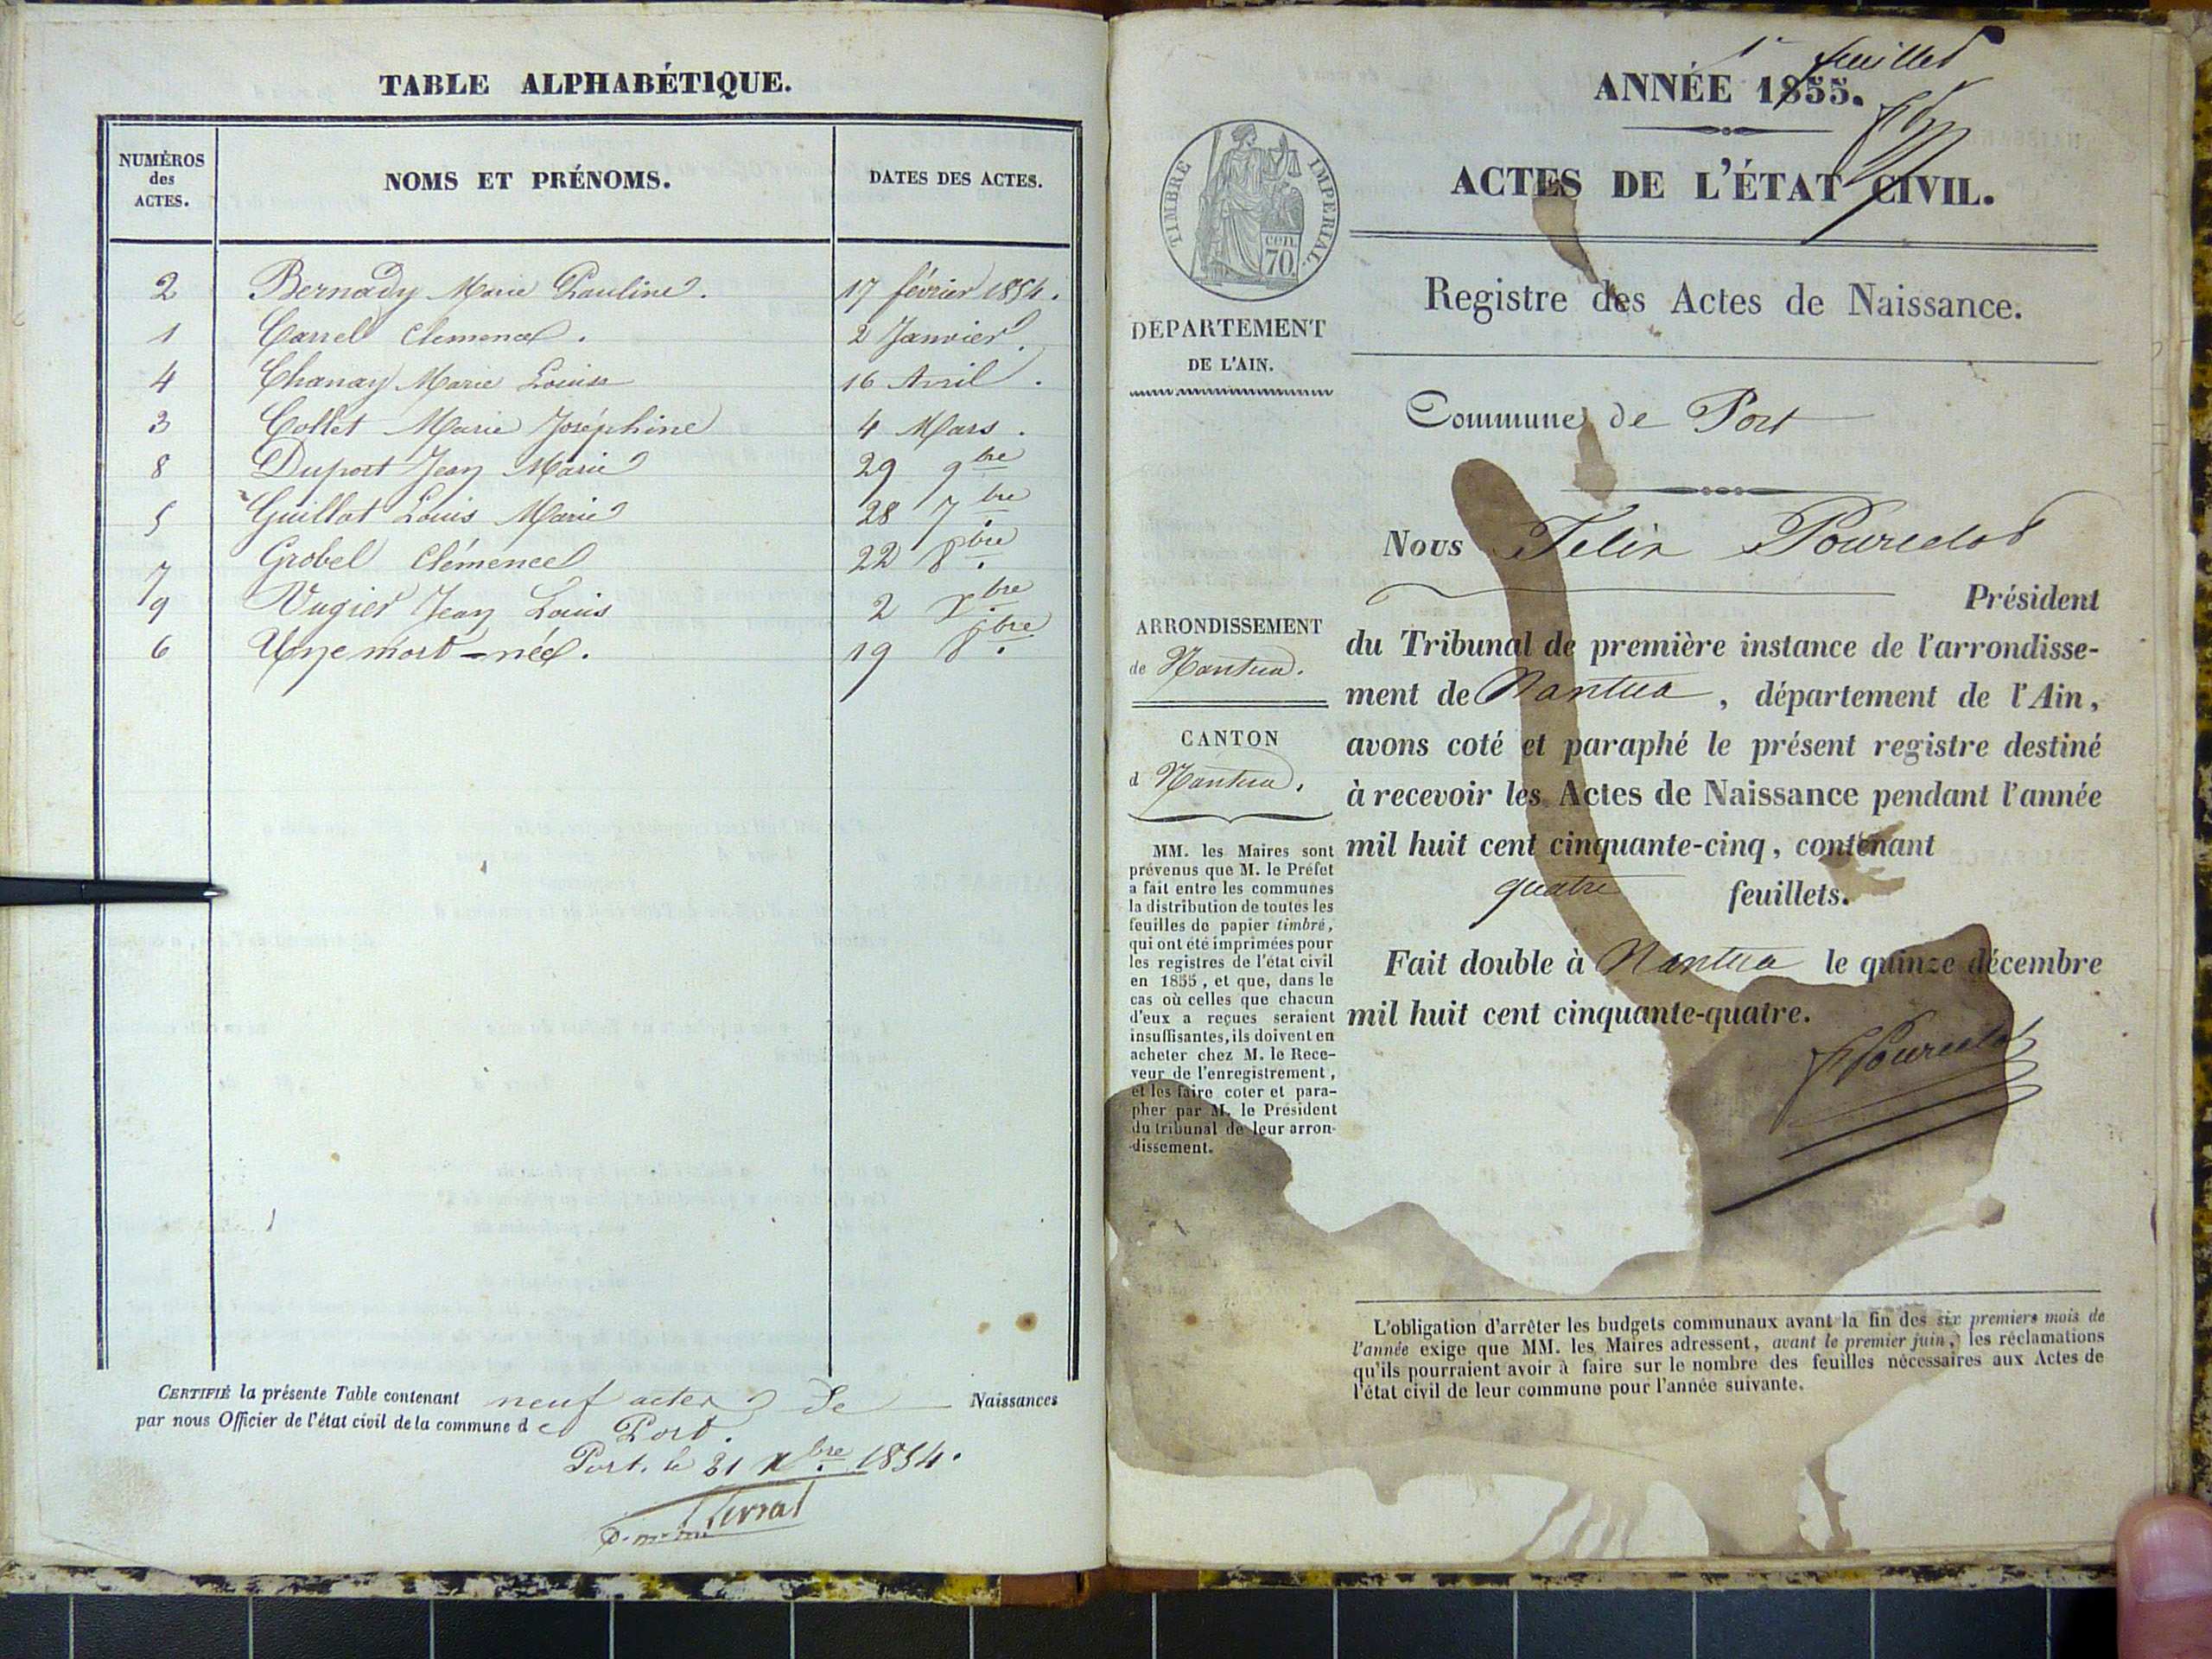 TABLE ALPHABÉTIQUE.
NUMÉROS des ACTES. NOMS ET PRÉNOMS. DATES DES ACTES.
2 Bernady Marie Pauline. 17 février 1854.
1 Carrel Clemence. 2 Janvier.
4 Chanay Marie Louise 16 Avril.
3 Collet Marie Joséphine 4 Mars.
8 Duport Jean Marie 29 9bre
5 Guillot Louis Marie 28 7bre.
7 Grobel Clémence 22 8bre.
9 Vugier Jean Louis 2 Xbre
6 Une mort-née. 19 8bre.
CERTIFIÉ la présente Table contenant neuf actes de Naissances
par nous Officier de l'état civil de la commune de Port.
Port, le 31 Xbre 1854.
ANNÉE 1855.
1er feuillet
ACTES DE L'ÉTAT CIVIL.
TIMBRE IMPERIAL.
cen. 70
Registre des Actes de Naissance.
DÉPARTEMENT
DE L'AIN.
Commune de Port
Nous Félix Pourcelot
Président
du Tribunal de première instance de l'arrondisse-
ment de Nantua, département de l'Ain,
avons coté et paraphé le présent registre destiné
à recevoir les Actes de Naissance pendant l'année
mil huit cent cinquante-cinq, contenant
quatre feuillets.
Fait double à Nantua le quinze décembre
mil huit cent cinquante-quatre.
F Pourcelot
ARRONDISSEMENT
de Nantua.
CANTON
d Nantua.
MM. les Maires sont
prévenus que M. le Préfet
a fait entre les communes
la distribution de toutes les
feuilles de papier timbré,
qui ont été imprimées pour
les registres de l'état civil
en 1855, et que, dans le
cas où celles que chacun
d'eux a reçues seraient
insuffisantes, ils doivent en
acheter chez M. le Rece-
veur de l'enregistrement,
et les faire coter et para-
pher par M. le Président
du tribunal de leur arron-
dissement.
L'obligation d'arrêter les budgets communaux avant la fin des six premiers mois de
l'année exige que MM. les Maires adressent, avant le premier juin, les réclamations
qu'ils pourraient avoir à faire sur le nombre des feuilles nécessaires aux Actes de
l'état civil de leur commune pour l'année suivante.